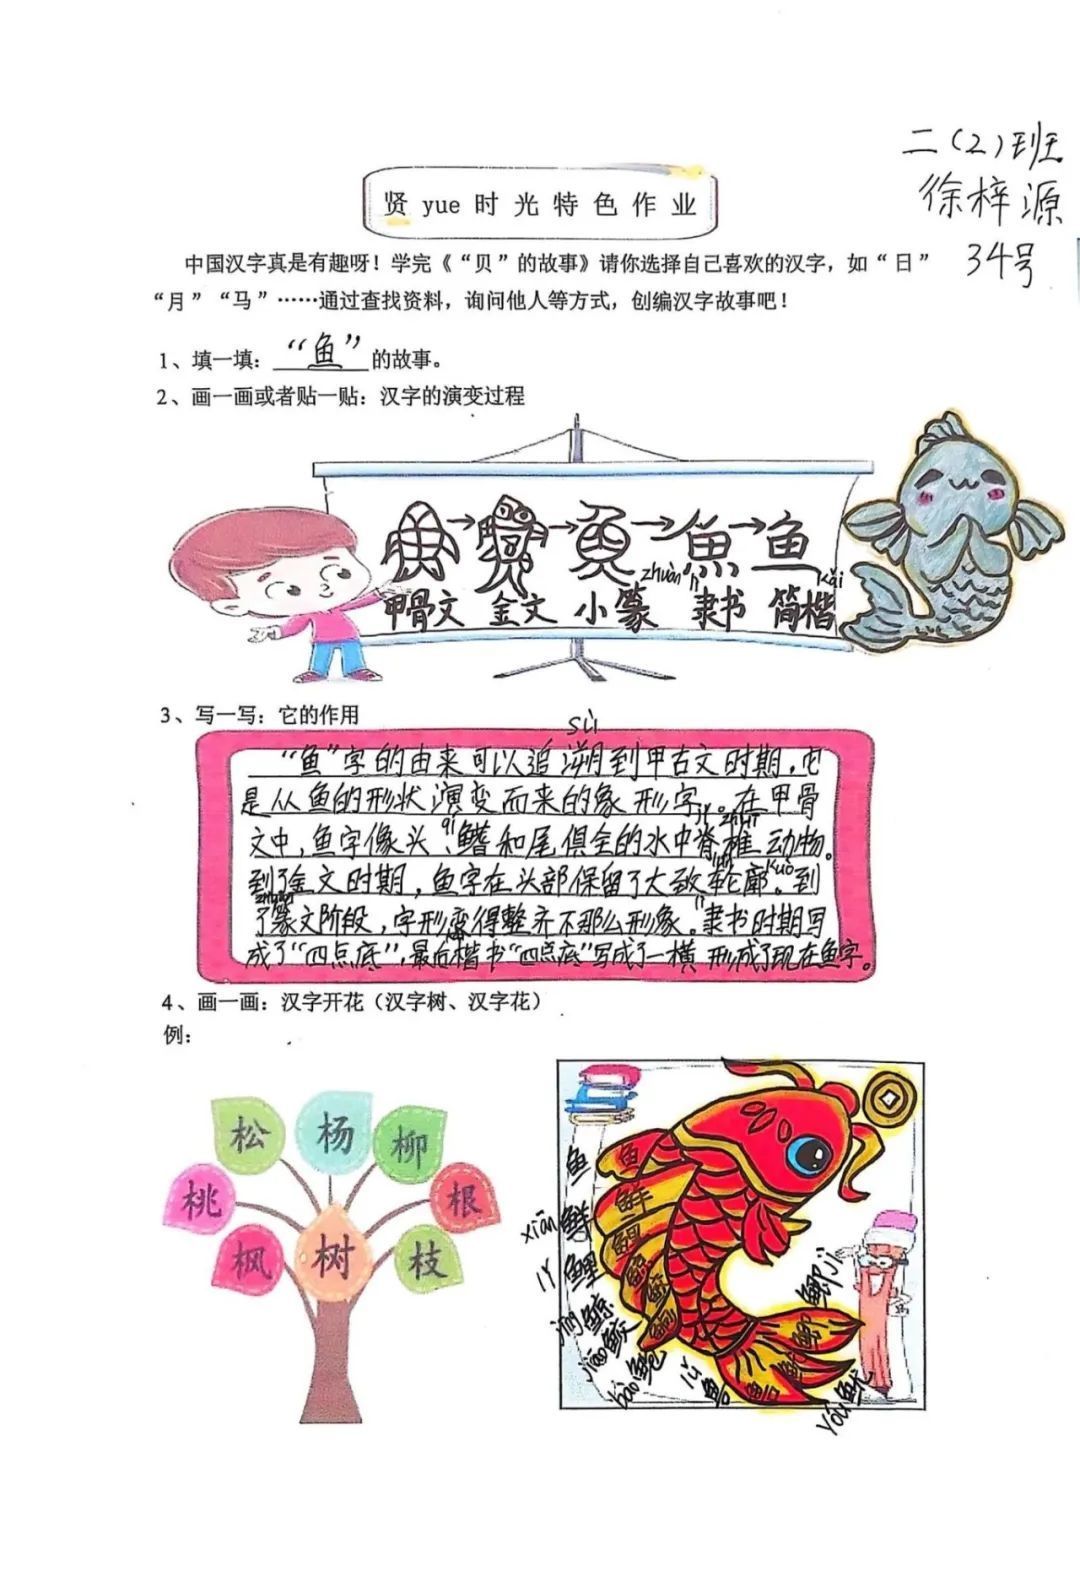 二(2)班
徐梓源
34号
贤yue时光特色作业
中国汉字真是有趣呀！学完《“贝”的故事》请你选择自己喜欢的汉字，如“日”
“月”“马”……通过查找资料，询问他人等方式，创编汉字故事吧！
1、填一填：“鱼”的故事。
2、画一画或者贴一贴：汉字的演变过程
魚→鱼
zhuàn lì kǎi
甲骨文 金文 小篆 隶书 简楷
3、写一写：它的作用
sù
“鱼”字的由来可以追溯到甲古文时期，它
是从鱼的形状演变而来的象形字。在甲骨
qí jǐ zhuī
文中，鱼字像头、鳍和尾俱全的水中脊椎动物。
lún kuò
到了金文时期，鱼字在头部保留了大致轮廓。到
zhuàn lì
了篆文阶段，字形变得整齐不那么形象。隶书时期写
成了“四点底”，最后楷书“四点底”写成了一横 形成了现在鱼字。
4、画一画：汉字开花（汉字树、汉字花）
例：
松 杨 柳
桃 根
枫 树 枝
鱼 鱼
xiān 鲜 鲜
lǐ 鲤 鲤
jīng 鲸
jiāo 鲛
bào 鲍
lǔ 鲁
鲫 jì
yóu 鱿